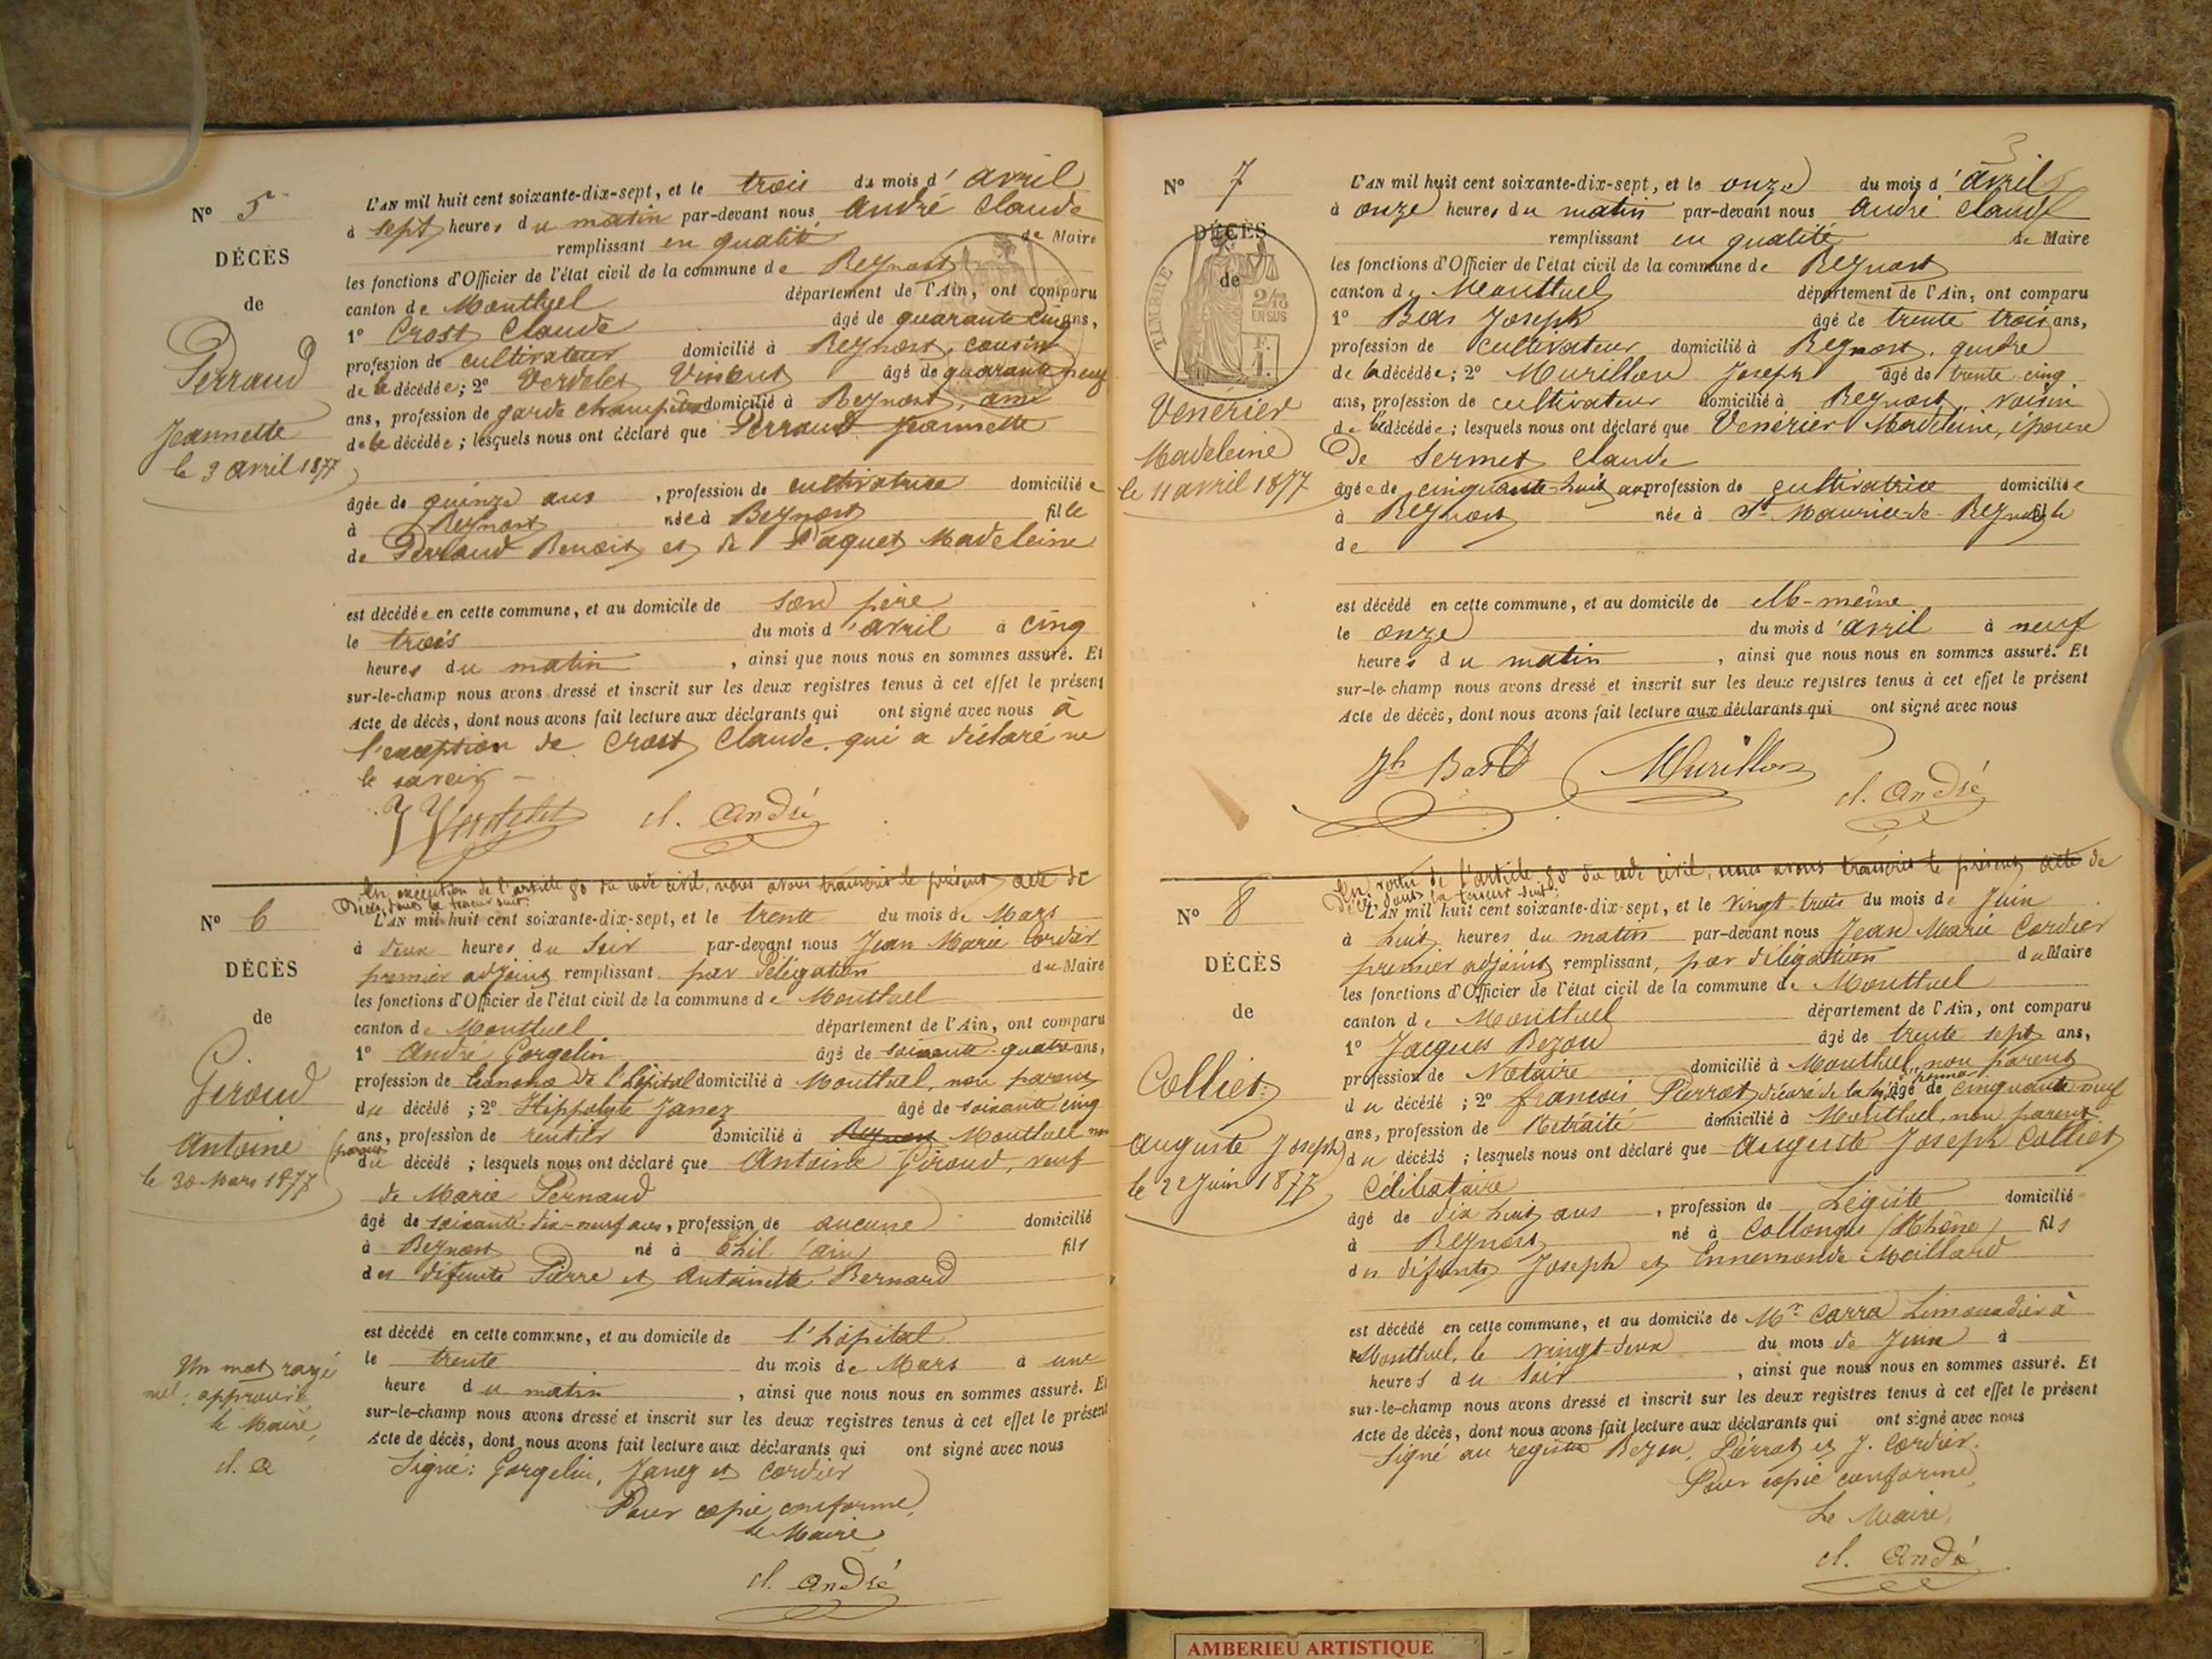 N° 5
DÉCÈS
de
Perraud
Jeannette
le 3 avril 1877
L'AN mil huit cent soixante-dix-sept, et le trois du mois d'avril
à sept heures du matin par-devant nous André Claude
remplissant en qualité de Maire
les fonctions d'Officier de l'état civil de la commune de Beynost
canton de Montluel département de l'Ain, ont comparu
1° Crost Claude âgé de quarante cinq ans,
profession de cultivateur domicilié à Beynost, cousin
de la décédée; 2° Verdelet Vincent âgé de quarante neuf
ans, profession de garde champêtre domicilié à Beynost, ami
de la décédée; lesquels nous ont déclaré que Perraud Jeannette
âgée de quinze ans, profession de cultivatrice domiciliée
à Beynost née à Beynost fille
de Perraud Benoit et de Paquet Madeleine
est décédée en cette commune, et au domicile de son père
le trois du mois d'avril à cinq
heures du matin, ainsi que nous nous en sommes assuré. Et
sur-le-champ nous avons dressé et inscrit sur les deux registres tenus à cet effet le présent
Acte de décès, dont nous avons fait lecture aux déclarants qui ont signé avec nous à
l'exception de Crost Claude qui a déclaré ne
le savoir
Verdelet cl. André
N° 6
DÉCÈS
de
Giroud
Antoine
le 30 Mars 1877
Un mot rayé
nul: approuvé
le Maire,
cl. a
En exécution de l'article 80 du code civil, nous avons transcrit le présent acte de
Décès dont la teneur suit:
L'AN mil huit cent soixante-dix-sept, et le trente du mois de Mars
à deux heures du soir par-devant nous Jean Marie Cordier
premier adjoint remplissant par délégation du Maire
les fonctions d'Officier de l'état civil de la commune de Montluel
canton de Montluel département de l'Ain, ont comparu
1° André Gorgelin âgé de soixante-quatre ans,
profession de économe de l'hôpital domicilié à Montluel, non parent
du décédé; 2° Hippolyte Janez âgé de soixante cinq
ans, profession de rentier domicilié à Beynost Montluel non
(parent
du décédé; lesquels nous ont déclaré que Antoine Giroud, veuf
de Marie Pernaud
âgé de soixante-dix-neuf ans, profession de aucune domicilié
à Beynost né à Thil (ain) fils
des défunts Pierre et Antoinette Bernard
est décédé en cette commune, et au domicile de l'hôpital
le trente du mois de Mars à une
heure du matin, ainsi que nous nous en sommes assuré. Et
sur-le-champ nous avons dressé et inscrit sur les deux registres tenus à cet effet le présent
Acte de décès, dont nous avons fait lecture aux déclarants qui ont signé avec nous
Signé: Gorgelin, Janez et Cordier
Pour copie conforme,
le Maire
cl. André
3
N° 7
DÉCÈS
de
TIMBRE
2/10
EN SUS
Venérier
Madeleine
le 11 avril 1877
L'AN mil huit cent soixante-dix-sept, et le onze du mois d'avril
à onze heures du matin par-devant nous André Claude
remplissant en qualité de Maire
les fonctions d'Officier de l'état civil de la commune de Beynost
canton de Montluel département de l'Ain, ont comparu
1° Bas Joseph âgé de trente trois ans,
profession de cultivateur domicilié à Beynost, gendre
de la décédée; 2° Murillon Joseph âgé de trente cinq
ans, profession de cultivateur domicilié à Beynost, voisin
de la décédée; lesquels nous ont déclaré que Venérier Madeleine, épouse
de Sermet Claude
âgée de cinquante-huit ans profession de cultivatrice domiciliée
à Beynost née à St Maurice-de-Beynost fille
de
est décédé en cette commune, et au domicile de elle-même
le onze du mois d'avril à neuf
heures du matin, ainsi que nous nous en sommes assuré. Et
sur-le-champ nous avons dressé et inscrit sur les deux registres tenus à cet effet le présent
Acte de décès, dont nous avons fait lecture aux déclarants qui ont signé avec nous
Jh Bas Murillon cl. André
N° 8
DÉCÈS
de
Colliet
Auguste Joseph
le 22 Juin 1877
En vertu de l'article 80 du code civil, nous avons transcrit le présent acte de
décès dont la teneur suit:
L'AN mil huit cent soixante-dix-sept, et le vingt-trois du mois de Juin
à huit heures du matin par-devant nous Jean Marie Cordier
premier adjoint remplissant, par délégation du Maire
les fonctions d'Officier de l'état civil de la commune de Montluel
canton de Montluel département de l'Ain, ont comparu
1° Jacques Bezon âgé de trente sept ans,
profession de Notaire domicilié à Montluel, non parent
du décédé; 2° François Pierrat décoré de la légion d'honneur âgé de cinquante neuf
ans, profession de Retraité domicilié à Montluel, non parent
du décédé; lesquels nous ont déclaré que Auguste Joseph Colliet
Célibataire
âgé de dix huit ans, profession de Légiste domicilié
à Beynost né à Collonges (Rhône) fils
des défunts Joseph et Ennemonde Maillard
est décédé en cette commune, et au domicile de Mr Carra Limonadier à
Montluel, le vingt deux du mois de Juin à
heures du soir, ainsi que nous nous en sommes assuré. Et
sur-le-champ nous avons dressé et inscrit sur les deux registres tenus à cet effet le présent
Acte de décès, dont nous avons fait lecture aux déclarants qui ont signé avec nous
Signé au registre Bezon, Pierrat et J. Cordier.
Pour copie conforme,
Le Maire,
cl. André
AMBERIEU ARTISTIQUE